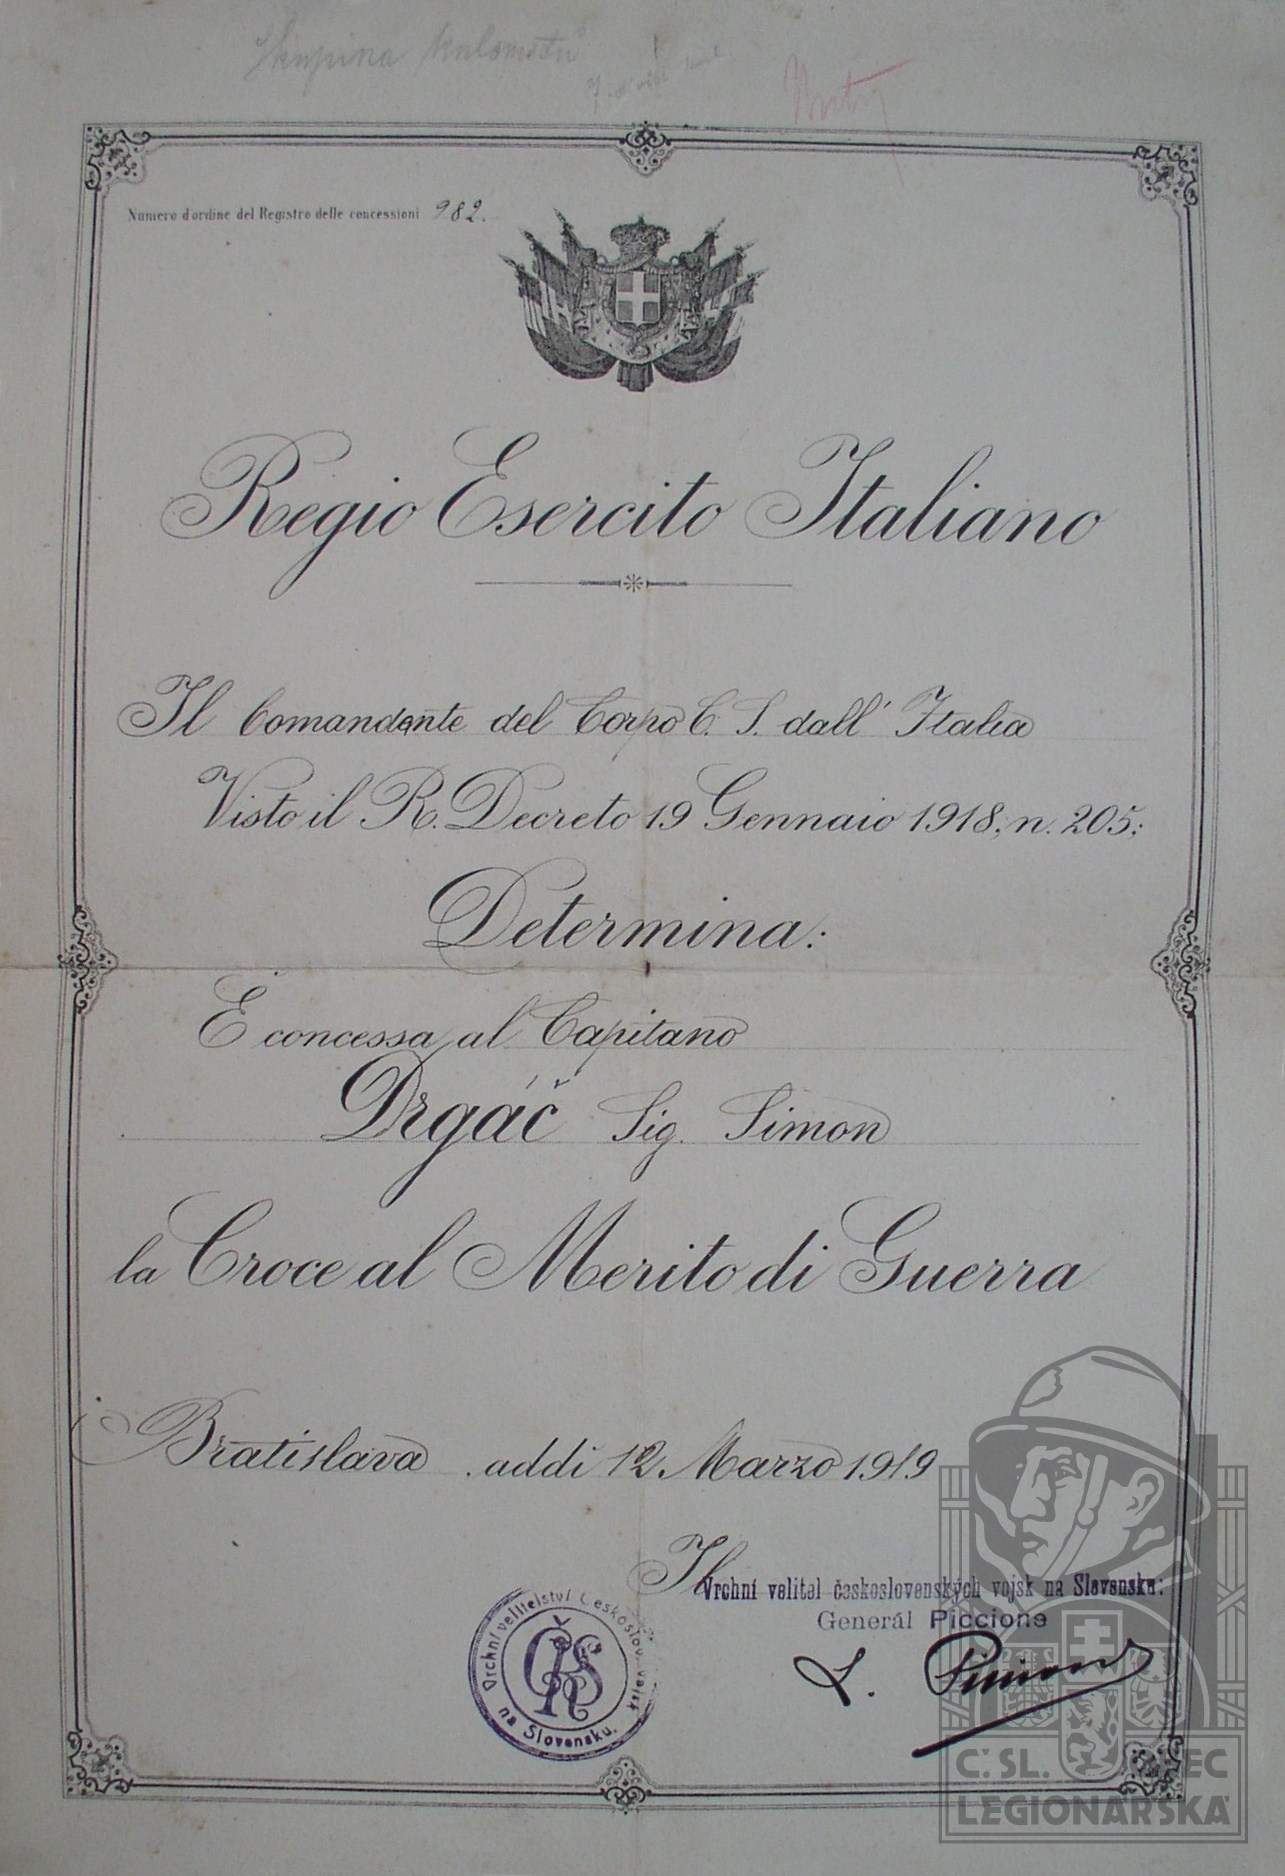 Skupina kulometů
Numero d'ordine del Registro delle concessioni 982.
Regio Esercito Italiano
Il Comandante del Corpo C. S. dall' Italia
Visto il R. Decreto 19 Gennaio 1918, n. 205;
Determina:
È concessa al Capitano
Drgáč Sig. Simon
la Croce al Merito di Guerra
Bratislava addì 12 Marzo 1919
Il
Vrchní velitel československých vojsk na Slovensku:
Generál Piccione
L. Piccione
Vrchní velitelství Českoslov. vojsk
na Slovensku.
ČRS
Č. SL. EC
LEGIONÁRSKÁ